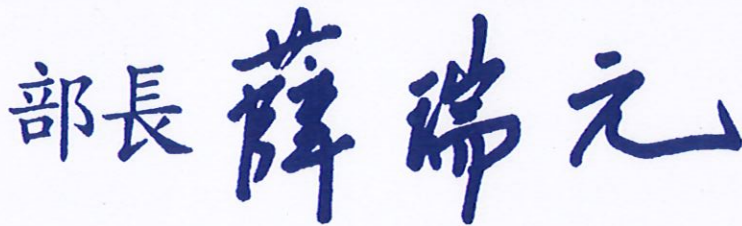 部長薛瑞元